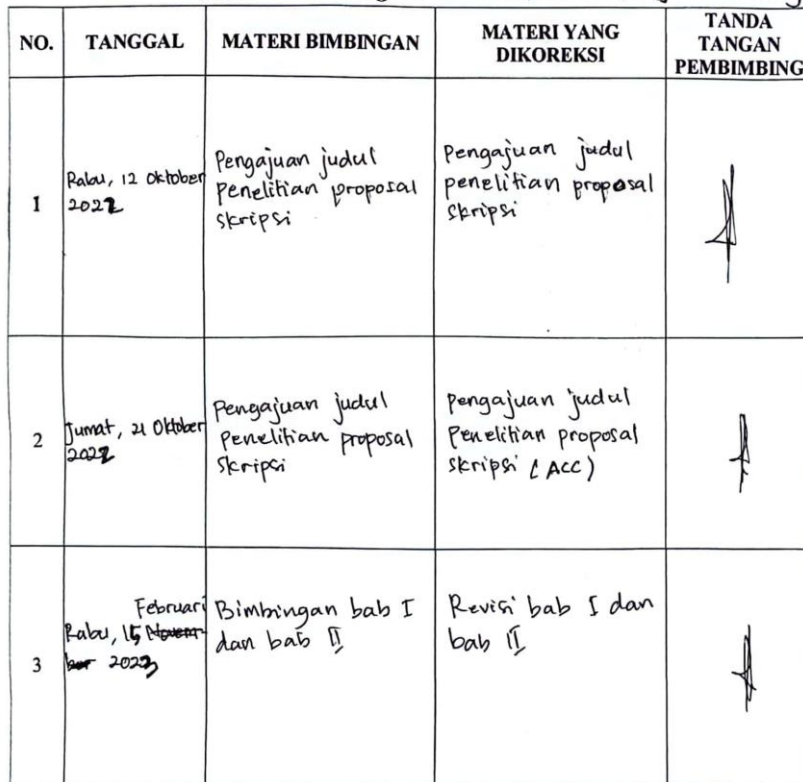 NO.
TANGGAL
MATERI BIMBINGAN
MATERI YANG
DIKOREKSI
TANDA
TANGAN
PEMBIMBING
1
Rabu, 12 Oktober
2022
Pengajuan judul
penelitian proposal
skripsi
Pengajuan judul
penelitian proposal
skripsi
2
Jumat, 21 Oktober
2022
Pengajuan judul
Penelitian proposal
Skripsi
Pengajuan judul
Penelitian proposal
skripsi (ACC)
3
Februari
Rabu, 15 Novem
ber 2023
Bimbingan bab I
dan bab II
Revisi bab I dan
bab II